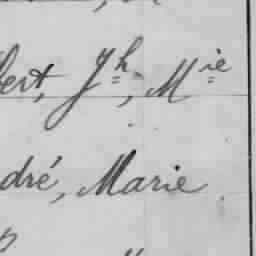 bert, Jh, Mie
dré, Marie